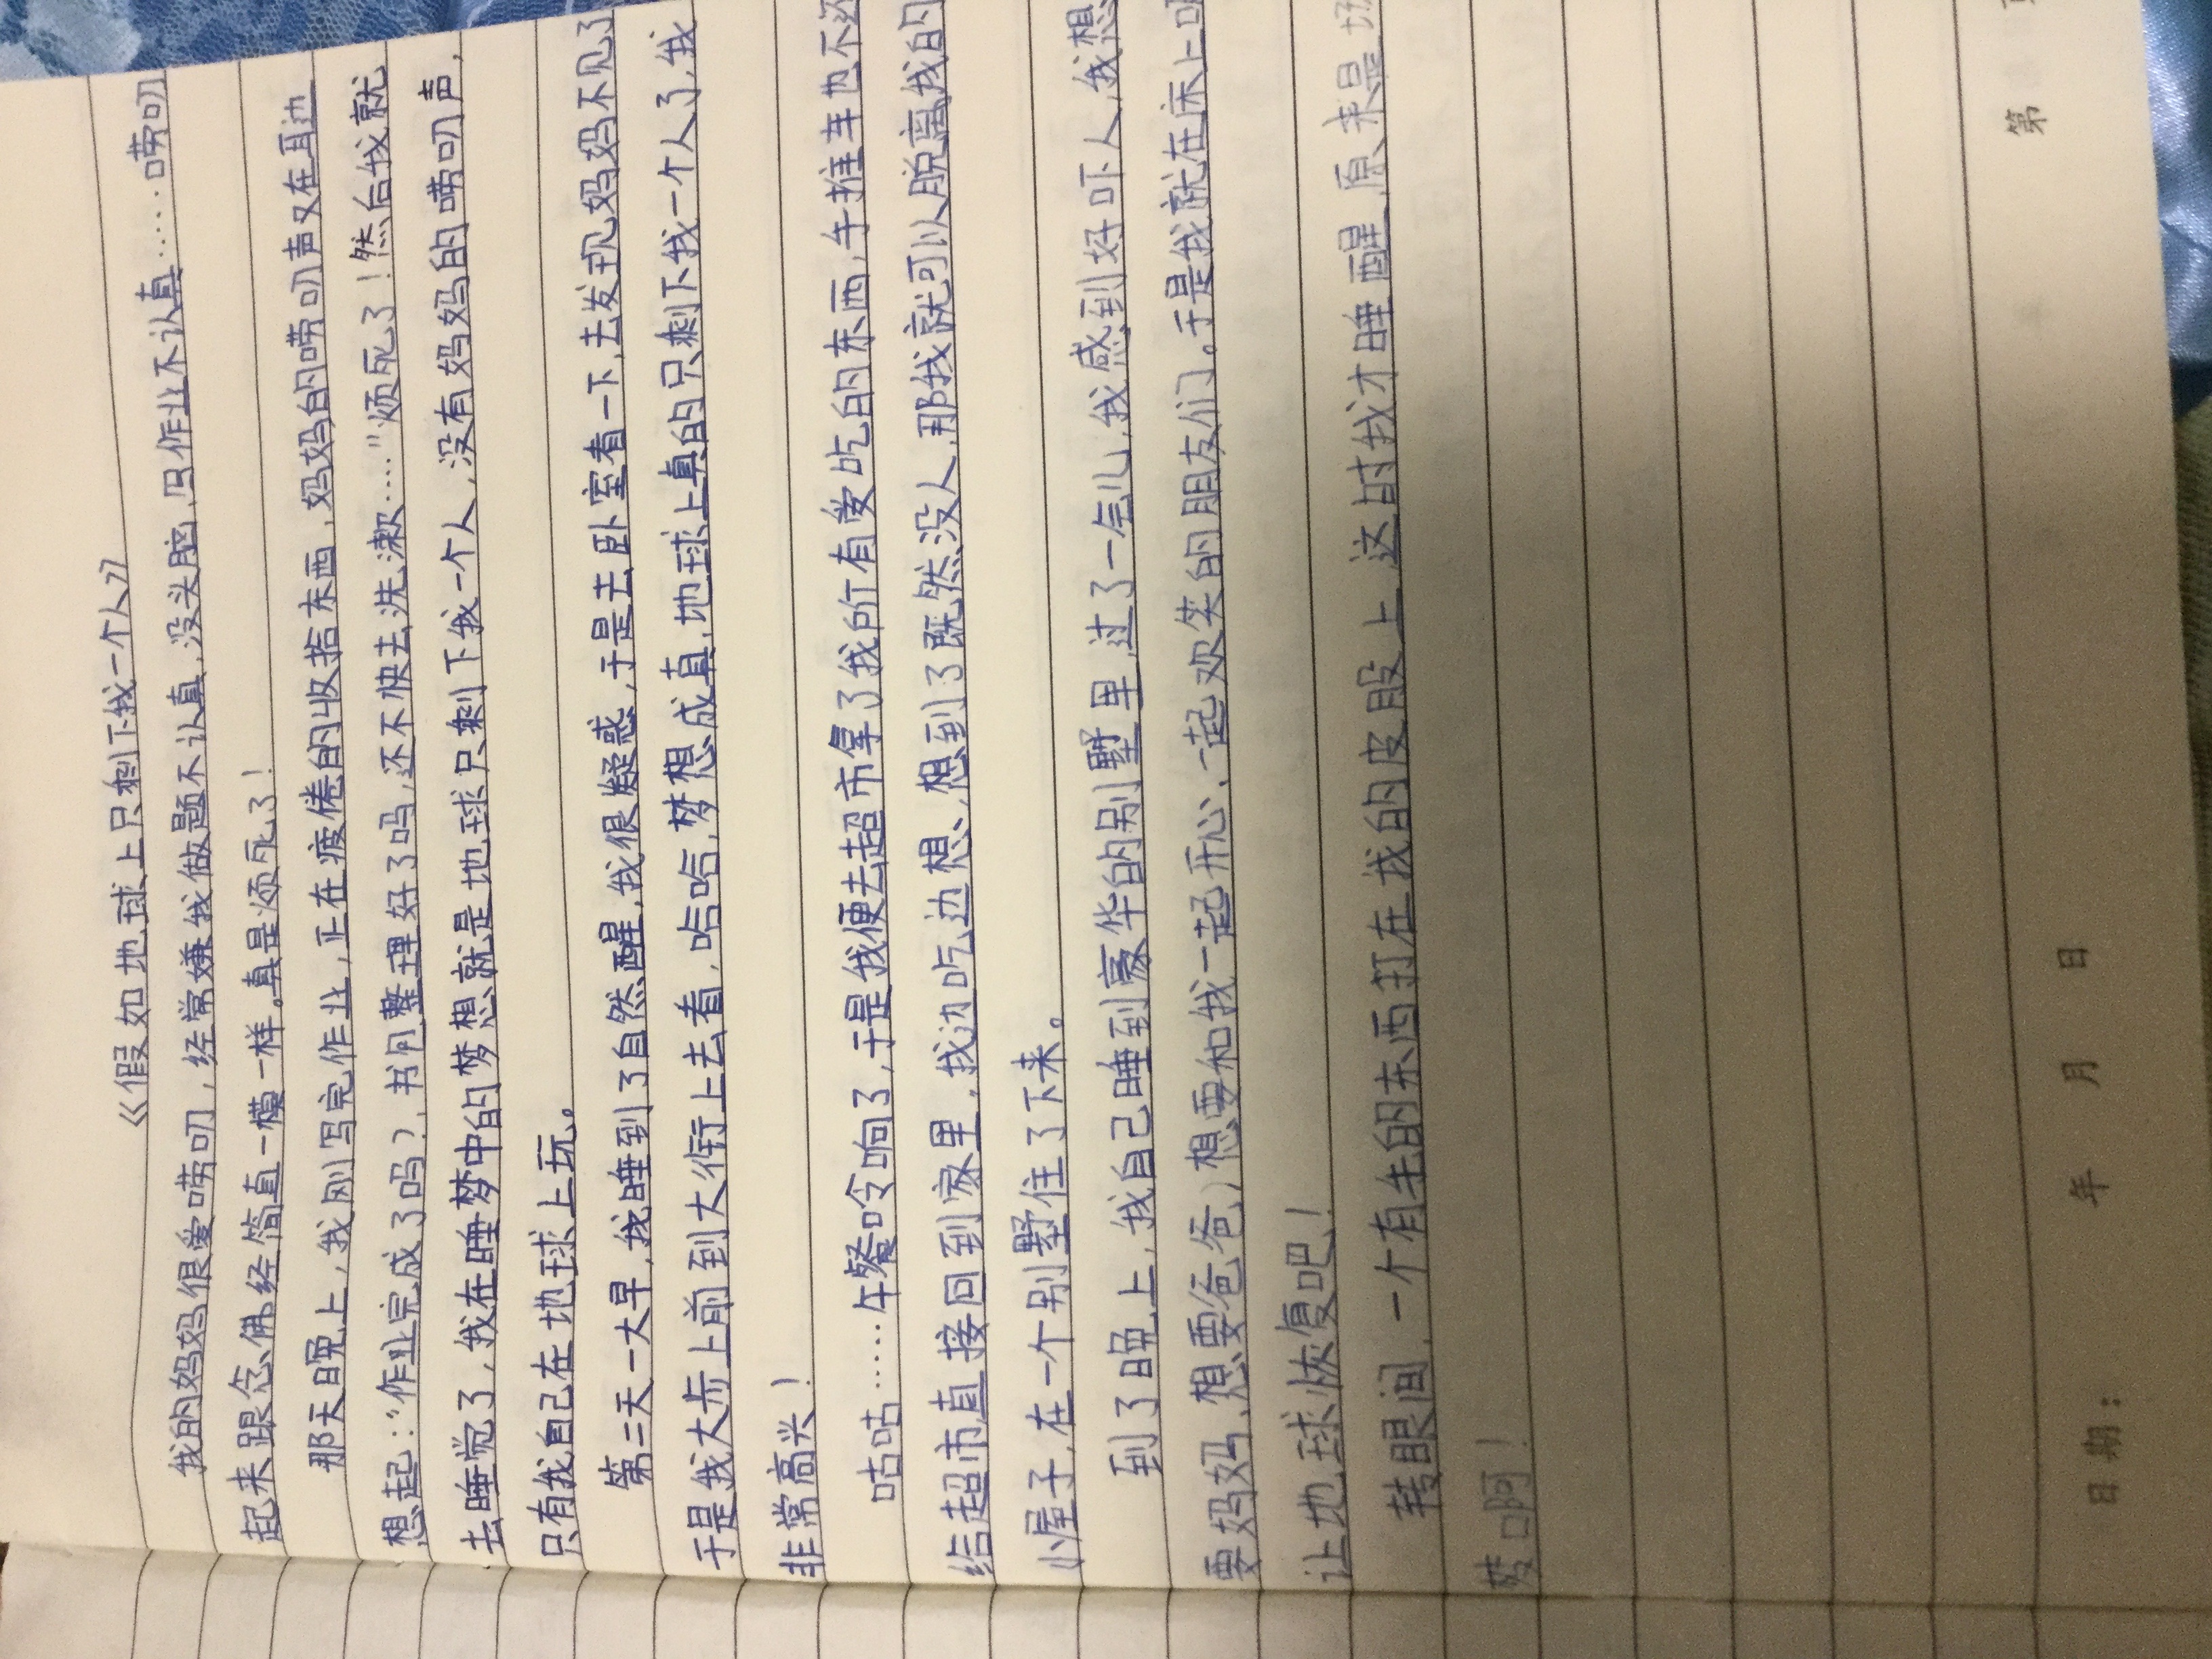 《假如地球上只剩下我一个人》
我的妈妈很爱唠叨，经常嫌我做题不认真，没头脑，写作业不认真……唠叨
起来跟念佛经简直一模一样。真是烦死了！
那天晚上，我刚写完作业，正在疲倦的收拾东西，妈妈的唠叨声又在耳边
想起：“作业完成了吗？书包整理好了吗，还不快去洗漱……”烦死了！然后我就
去睡觉了，我在睡梦中的梦想就是地球只剩下我一个人，没有妈妈的唠叨声，
只有我自己在地球上玩。
第二天一大早，我睡到了自然醒，我很疑惑，于是去卧室看一下，去发现妈妈不见了
于是我大步上前到大街上去看，哈哈，梦想成真，地球上真的只剩下我一个人了，我
非常高兴！
咕咕……午餐呤响了，于是我便去超市拿了我所有爱吃的东西，手推车也不还
给超市直接回到家里，我边吃边想，想到了既然没人，那我就可以脱离我的
小屋子，在一个别野住了下来。
到了晚上，我自己睡到豪华的别墅里，过了一会儿，我感到好吓人，我想
要妈妈，想要爸爸，想要和我一起开心、一起欢笑的朋友们。于是我就在床上
让地球恢复吧！
转眼间，一个有毛的东西打在我的皮股上，这时我才睡醒，原来是场
梦啊！
日期： 年 月 日
第